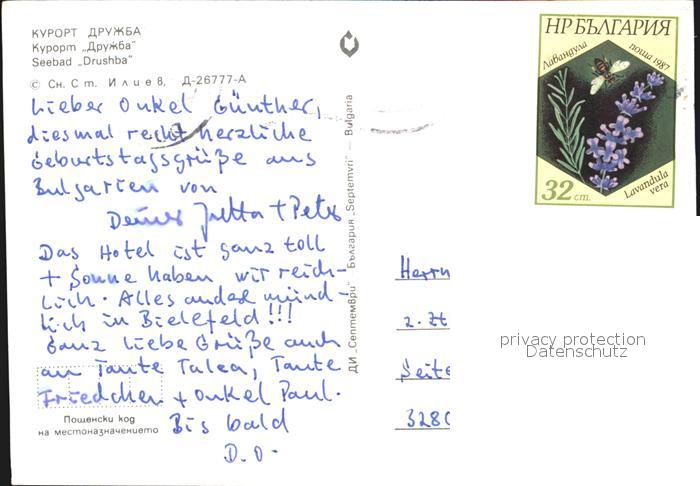 КУРОРТ ДРУЖБА
Курорт „Дружба"
Seebad „Drushba"
© Сн. Ст. Илиев, Д-26777-А
Lieber Onkel Günther,
diesmal recht herzliche
Geburtstagsgrüße aus
Bulgarien von
Deiner Jutta + Peter
Das Hotel ist ganz toll
+ Sonne haben wir reich-
lich. Alles andere münd-
lich in Bielefeld!!!
Ganz liebe Grüße auch
an Tante Talea, Tante
Friedchen + Onkel Paul.
Bis bald
D.O.
Пощенски код
на местоназначението
ДИ „Септември" — България „Septemvri" — Bulgaria
НР БЪЛГАРИЯ
Лавандула
поща 1987
32 ст.
Lavandula
vera
Herrn
z. Zt
Seite
3280
privacy protection
Datenschutz